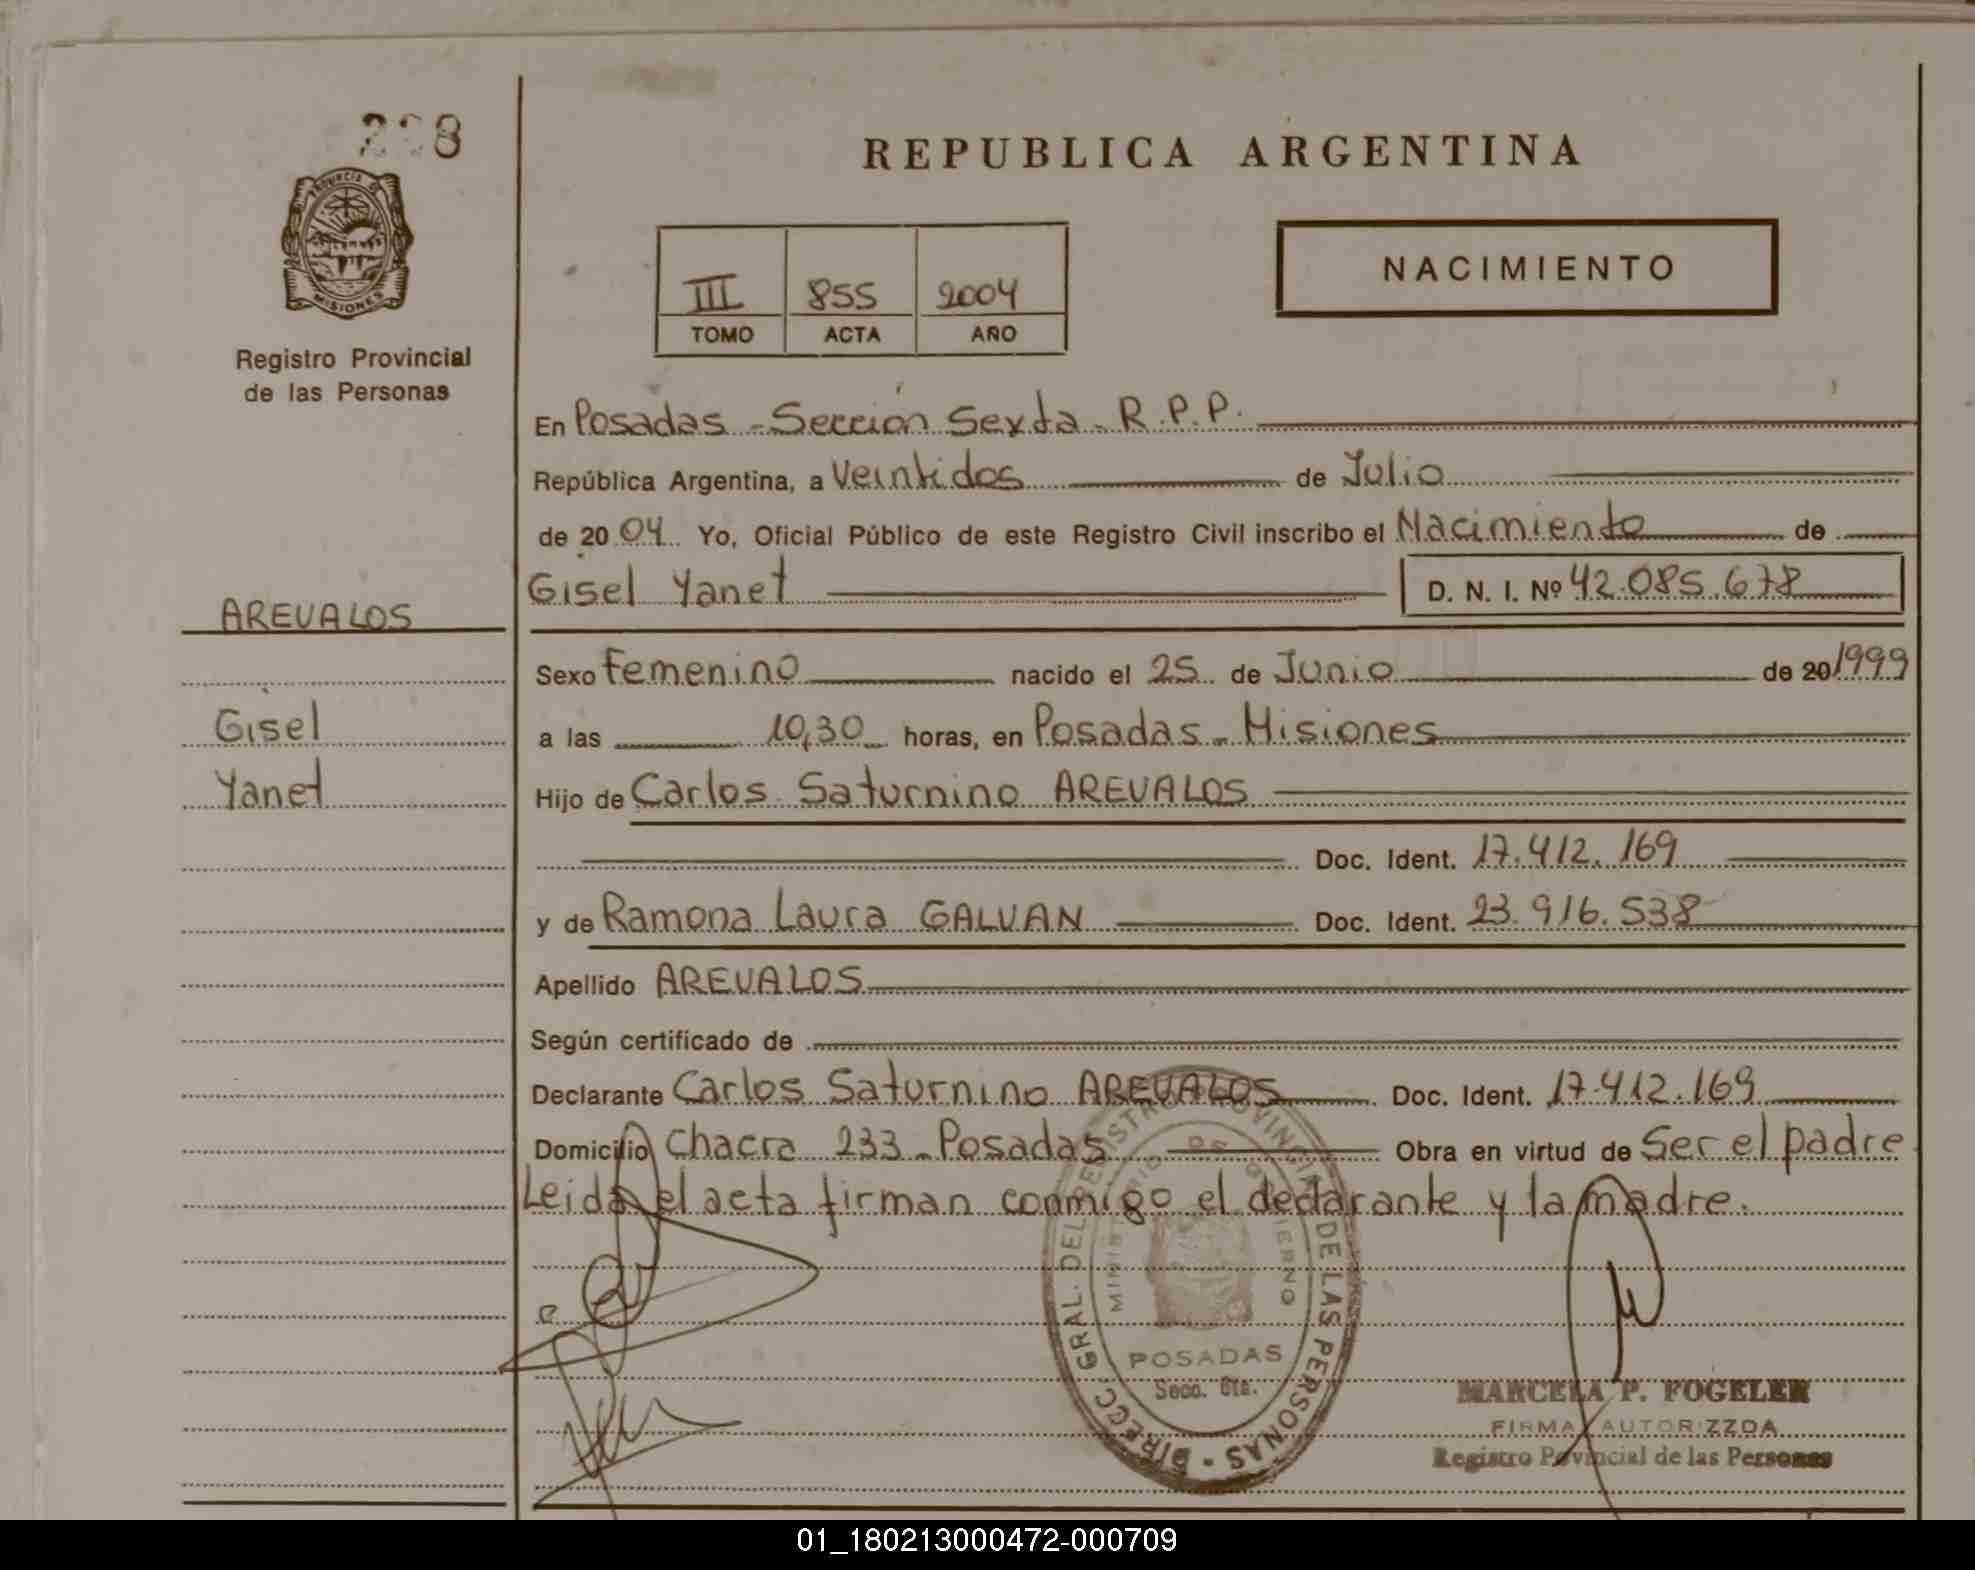 PROVINCIA DE
MISIONES
Registro Provincial
de las Personas
AREVALOS
Gisel
Yanet
REPUBLICA ARGENTINA
III 855 2004
TOMO ACTA AÑO
NACIMIENTO
En Posadas - Sección Sexta - R.P.P.
República Argentina, a Veintidos de Julio
de 20 04 Yo, Oficial Público de este Registro Civil inscribo el Nacimiento de
Gisel Yanet D. N. I. Nº 42.085.678
Sexo Femenino nacido el 25 de Junio de 20/1999
a las 10,30 horas, en Posadas - Misiones
Hijo de Carlos Saturnino AREVALOS
Doc. Ident. 17.412.169
y de Ramona Laura GALVAN Doc. Ident. 23.916.538
Apellido AREVALOS
Según certificado de
Declarante Carlos Saturnino AREVALOS Doc. Ident. 17.412.169
Domicilio Chacra 233 - Posadas Obra en virtud de Ser el padre
Leida el acta firman conmigo el declarante y la madre.
DIRECC. GRAL. DEL REGISTRO PROVINCIAL DE LAS PERSONAS
MINISTERIO DE GOBIERNO
POSADAS
Secc. 6ta.
MARCELA P. FOGELER
FIRMA AUTORIZZDA
Registro Provincial de las Personas
01_180213000472-000709